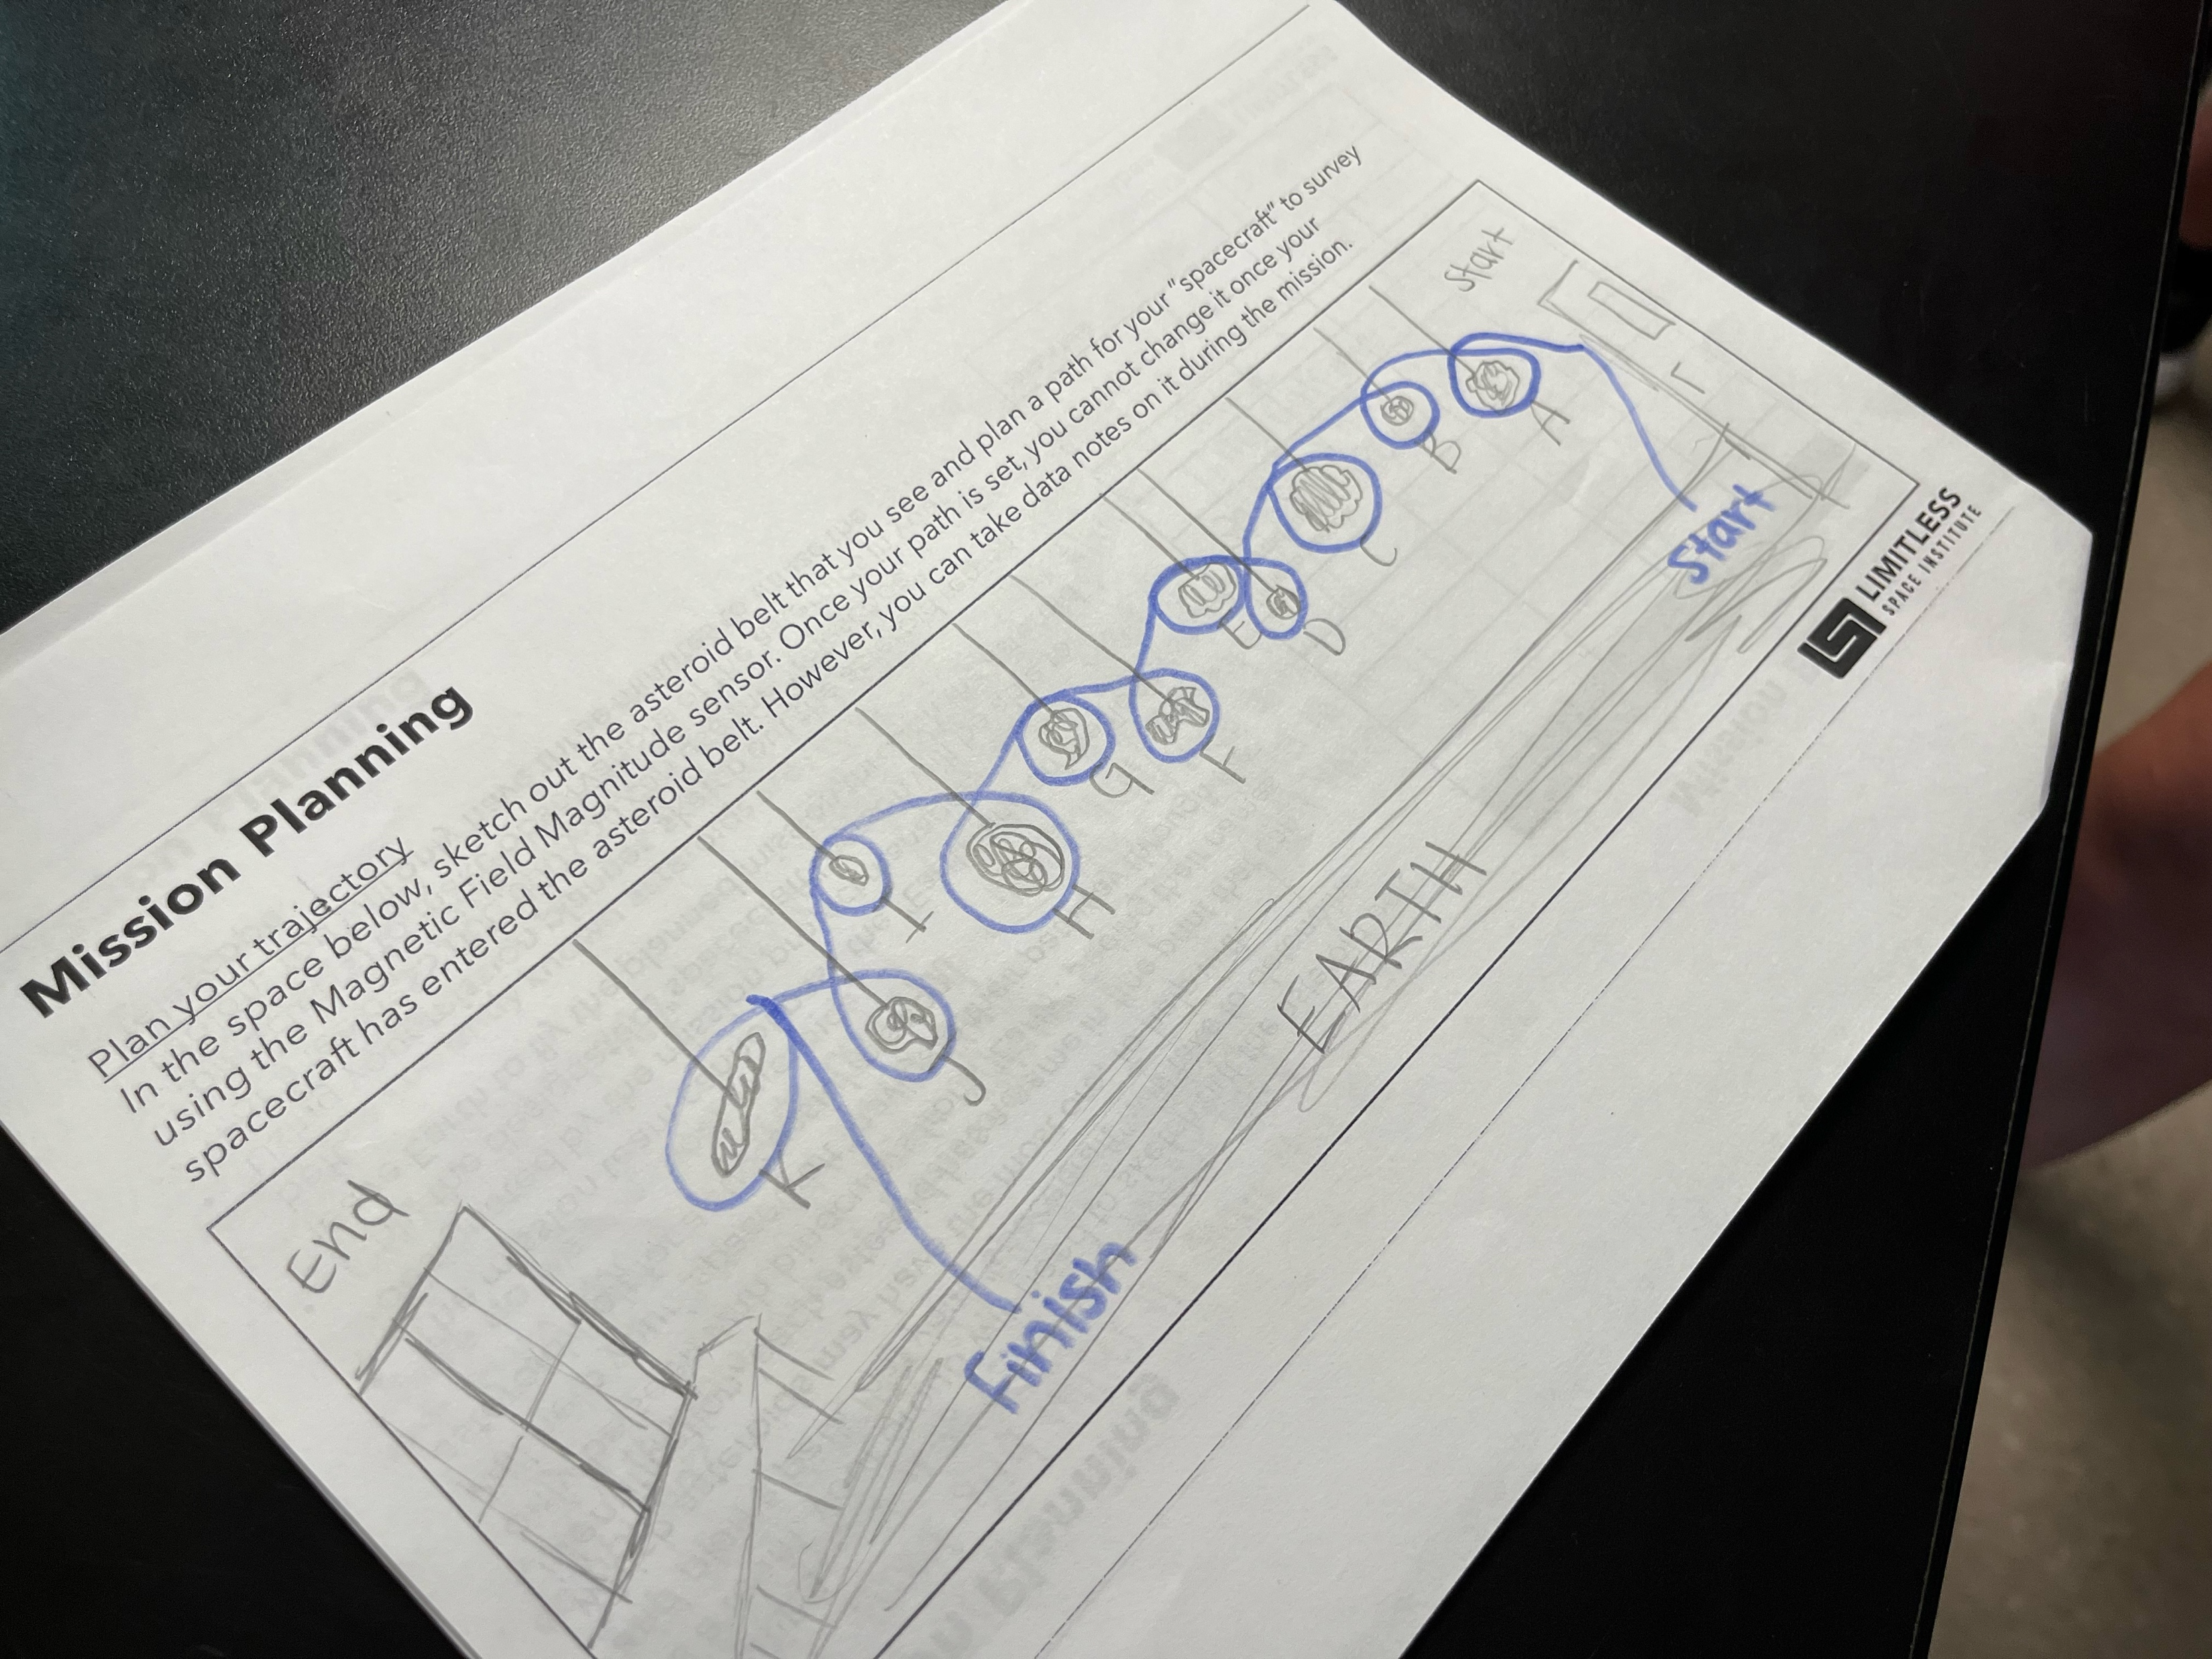 Mission Planning
Plan your trajectory
In the space below, sketch out the asteroid belt that you see and plan a path for your "spacecraft" to survey
using the Magnetic Field Magnitude sensor. Once your path is set, you cannot change it once your
spacecraft has entered the asteroid belt. However, you can take data notes on it during the mission.
End
Start
K
J
I
H
G
F
E
D
C
B
A
EARTH
Finish
Start
LIMITLESS
SPACE INSTITUTE